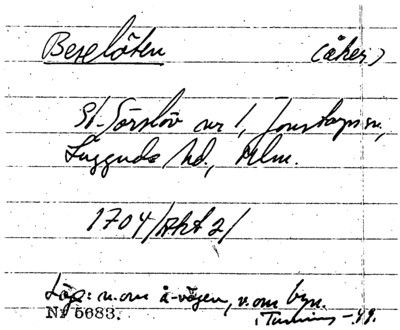 Beselöten (åker)
St. Görslöv nr 1, Jonstorps sn,
Luggude hd, Mlm.
1704/Akt 2/
Läge: n. om å-vägen, v. om byn.
Nr 5683. -49.